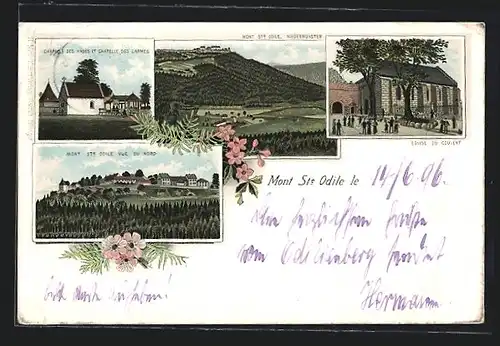 CHAPELLE DES ANGES ET CHAPELLE DES LARMES
MONT STE ODILE, NIEDERMUNSTER
EGLISE DU COUVENT
MONT STE ODILE VUE DU NORD
Mont Ste Odile le 14/6 96.
Die herzlichsten Grüße
vom Odilienberg sendet
Hermann